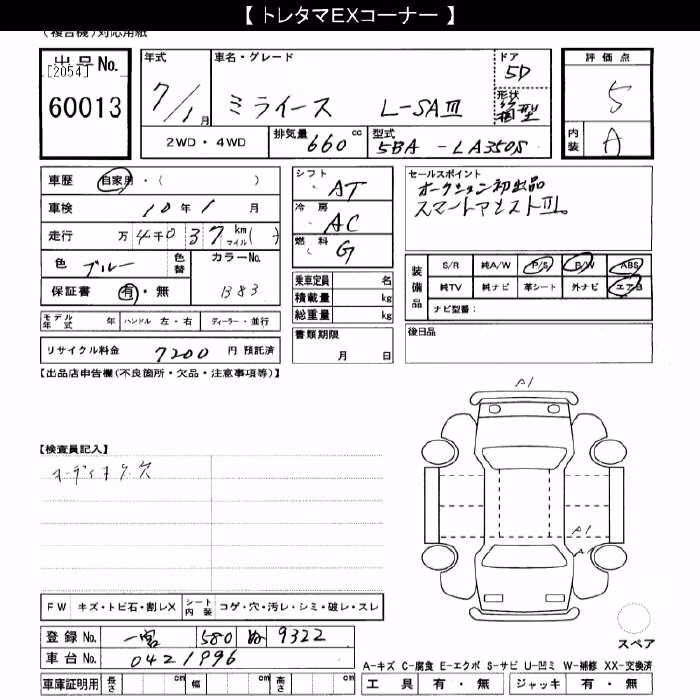 【 トレタマEXコーナー 】
(複合機)対応用紙
出品No.
[2054]
60013
年式
7/1月
車名・グレード
ミライース L-SAⅢ
ドア
5D
形状
箱型
評価点
5
内装
A
2WD・4WD
排気量 660 cc
型式 5BA-LA350S
車歴 自家用・( )
車検 10年1月
走行 万4千037km(マイル)
色 ブルー
色替
カラーNo.
B83
保証書 有・無
シフト
AT
冷房
AC
燃料
G
セールスポイント
オークション初出品
スマートアシストⅢ
乗車定員 名
積載量 kg
総重量 kg
装備品
S/R 純A/W P/S P/W ABS
純TV 純ナビ 革シート 外ナビ エアB
ナビ型番:
モデル年式 年 ハンドル 左・右 ディーラー・並行
リサイクル料金 7200 円 預託済
書類期限
月 日
後日品
【出品店申告欄(不良箇所・欠品・注意事項等)】
A1
【検査員記入】
オーディオレス穴
A1
A1
FW キズ・トビ石・割レX シート内装 コゲ・穴・汚レ・シミ・破レ・スレ
登録No. 一宮 580 ぬ 9322
車台No. 0421996
車庫証明用 長さ cm 幅 cm 高さ cm
スペア
A-キズ C-腐食 E-エクボ S-サビ U-凹ミ W-補修 XX-交換済
工具 有・無 ジャッキ 有・無